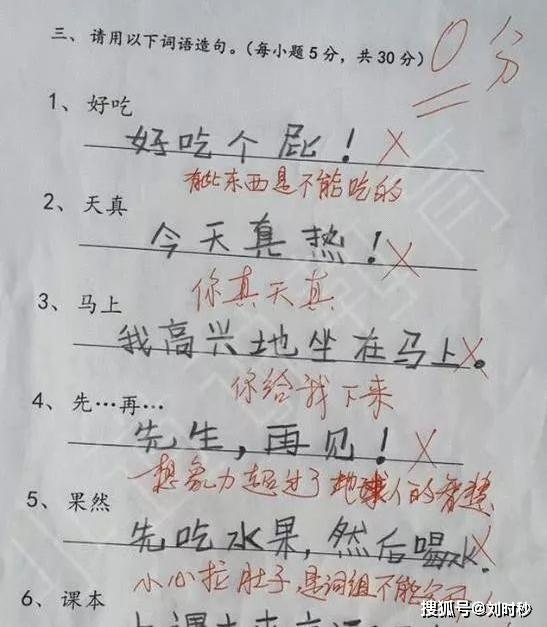 三、请用以下词语造句。(每小题5分，共30分)
0分
1、好吃
好吃个屁！
有些东西是不能吃的
2、天真
今天真热！
你真天真
3、马上
我高兴地坐在马上。
你给我下来
4、先…再…
先生，再见！
想象力超过了地球人的智慧
5、果然
先吃水果，然后喝水.
小心拉肚子 是词组不能分开
6、课本
上课
搜狐号@刘时秒